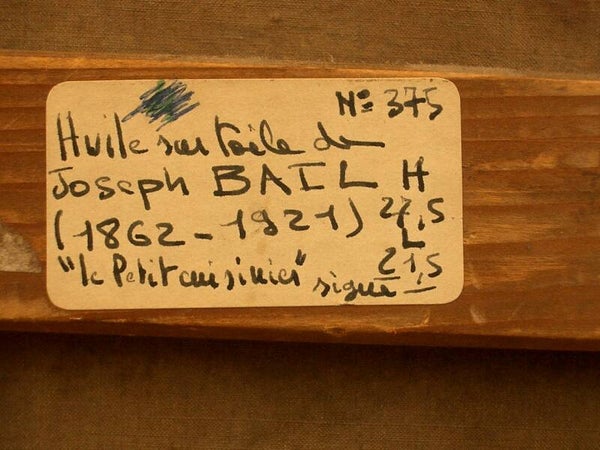 N° 375
Huile sur toile de
Joseph BAIL H
(1862 - 1921) 27,5
L
"le Petit cuisinier" signé 21,5